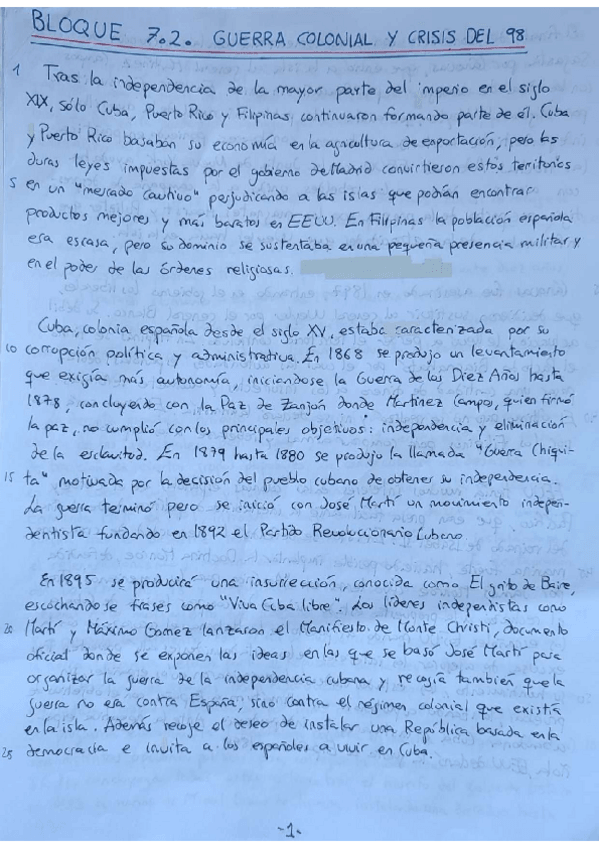 BLOQUE 7.2. GUERRA COLONIAL Y CRISIS DEL 98
1 Tras la independencia de la mayor parte del imperio en el siglo
XIX, sólo Cuba, Puerto Rico y Filipinas continuaron formando parte de él. Cuba
y Puerto Rico basaban su economía en la agricultura de exportación, pero las
duras leyes impuestas por el gobierno de Madrid convirtieron estos territorios
5 en un "mercado cautivo" perjudicando a las islas que podían encontrar
productos mejores y más baratos en EEUU. En Filipinas la población española
era escasa, pero su dominio se sustentaba en una pequeña presencia militar y
en el poder de las órdenes religiosas.
Cuba, colonia española desde el siglo XV, estaba caracterizada por su
10 corrupción política y administrativa. En 1868 se produjo un levantamiento
que exigía más autonomía, iniciándose la Guerra de los Diez Años hasta
1878, concluyendo con la Paz de Zanjón donde Martínez Campos, quien firmó
la paz, no cumplió con los principales objetivos: independencia y eliminación
de la esclavitud. En 1879 hasta 1880 se produjo la llamada "Guerra Chiqui-
15 ta" motivada por la decisión del pueblo cubano de obtener su independencia.
La guerra terminó pero se inició con José Martí un movimiento indepen-
dentista fundando en 1892 el Partido Revolucionario Cubano.
En 1895 se producirá una insurrección, conocida como El grito de Baire,
escuchándose frases como "Viva Cuba libre". Los líderes independistas como
20 Martí y Máximo Gomez lanzaron el Manifiesto de Monte Christi, documento
oficial donde se exponen las ideas en las que se basó José Martí para
organizar la guerra de la independencia cubana y recogía también que la
guerra no era contra España, sino contra el régimen colonial que existía
en la isla. Además recoje el deseo de instalar una República basada en la
25 democracia e invita a los españoles a vivir en Cuba.
-1-